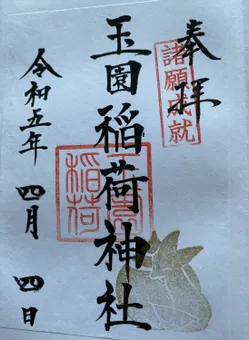 奉拝
諸願成就
玉園稲荷神社
稲荷
令和五年
四月
四日